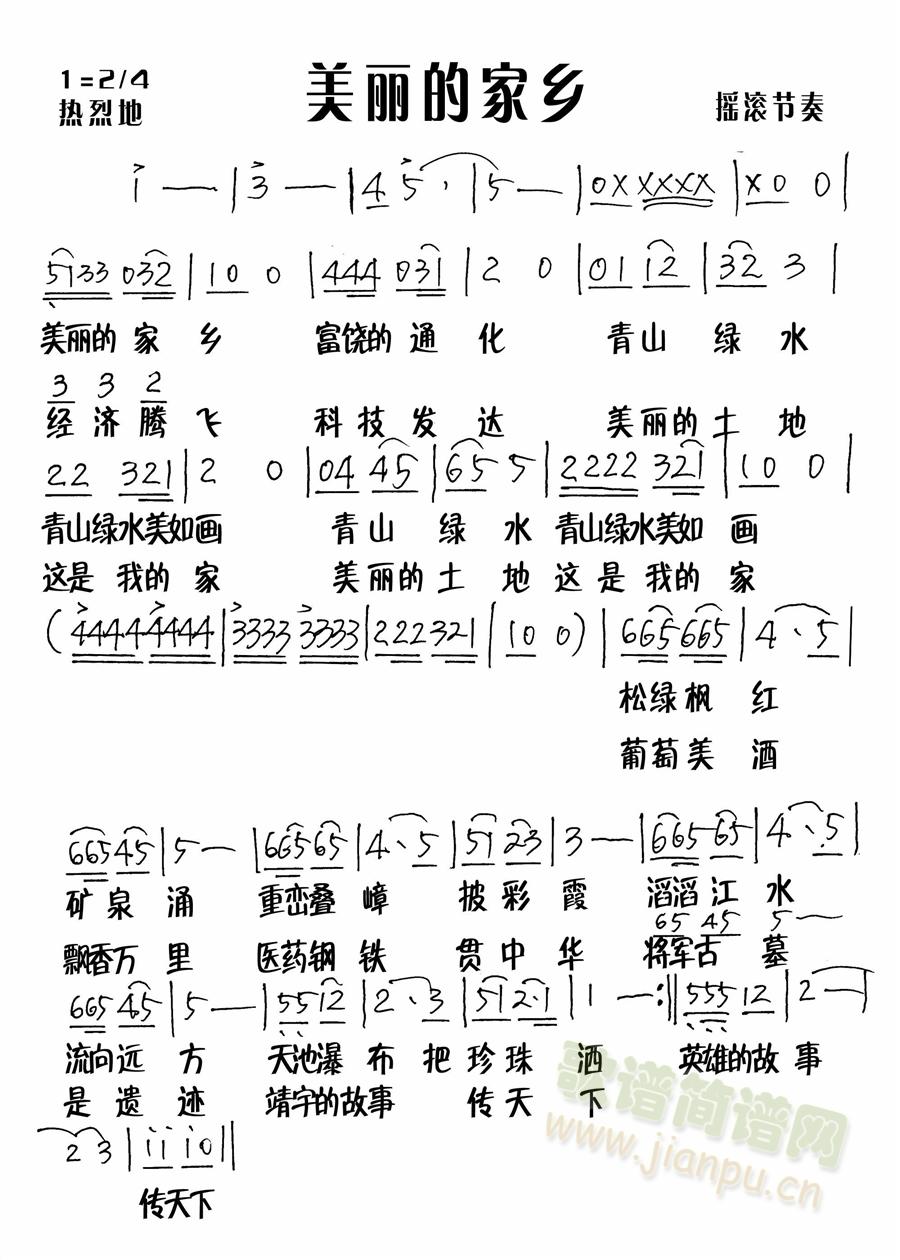 美丽的家乡
1=2/4
热烈地
摇滚节奏
i — | 3 — | 4 5 · | 5 — | 0X XXXX | X0 0 |
5133 032 | 10 0 | 444 031 | 2 0 | 01 12 | 32 3 |
美丽的 家 乡 富饶的 通 化 青山 绿 水
3 3 2
经 济 腾 飞 科 技 发 达 美丽的 土 地
22 321 | 2 0 | 04 45 | 65 5 | 2222 321 | 10 0 |
青山绿水美如画 青 山 绿 水 青山绿水美如 画
这是 我的 家 美丽的 土 地 这 是 我的 家
(4444 4444 | 3333 3333 | 222 321 | 10 0) | 665 665 | 4 · 5 |
松绿 枫 红
葡萄 美 酒
665 45 | 5 — | 665 65 | 4 · 5 | 51 23 | 3 — | 665 65 | 4 · 5 |
矿 泉 涌 重峦叠 嶂 披 彩 霞 滔滔 江 水
65 45 5 —
飘香万 里 医药钢 铁 贯 中 华 将军古 墓
665 45 | 5 — | 55 12 | 2 · 3 | 51 2·1 | 1 — :|| 555 12 | 2 — |
流向 远 方 天池瀑 布 把 珍 珠 洒 英雄的 故 事
是 遗 迹 靖宇的 故事 传 天 下
2 3 | i i i 0 ||
传天下
歌谱简谱网
www.jianpu.cn